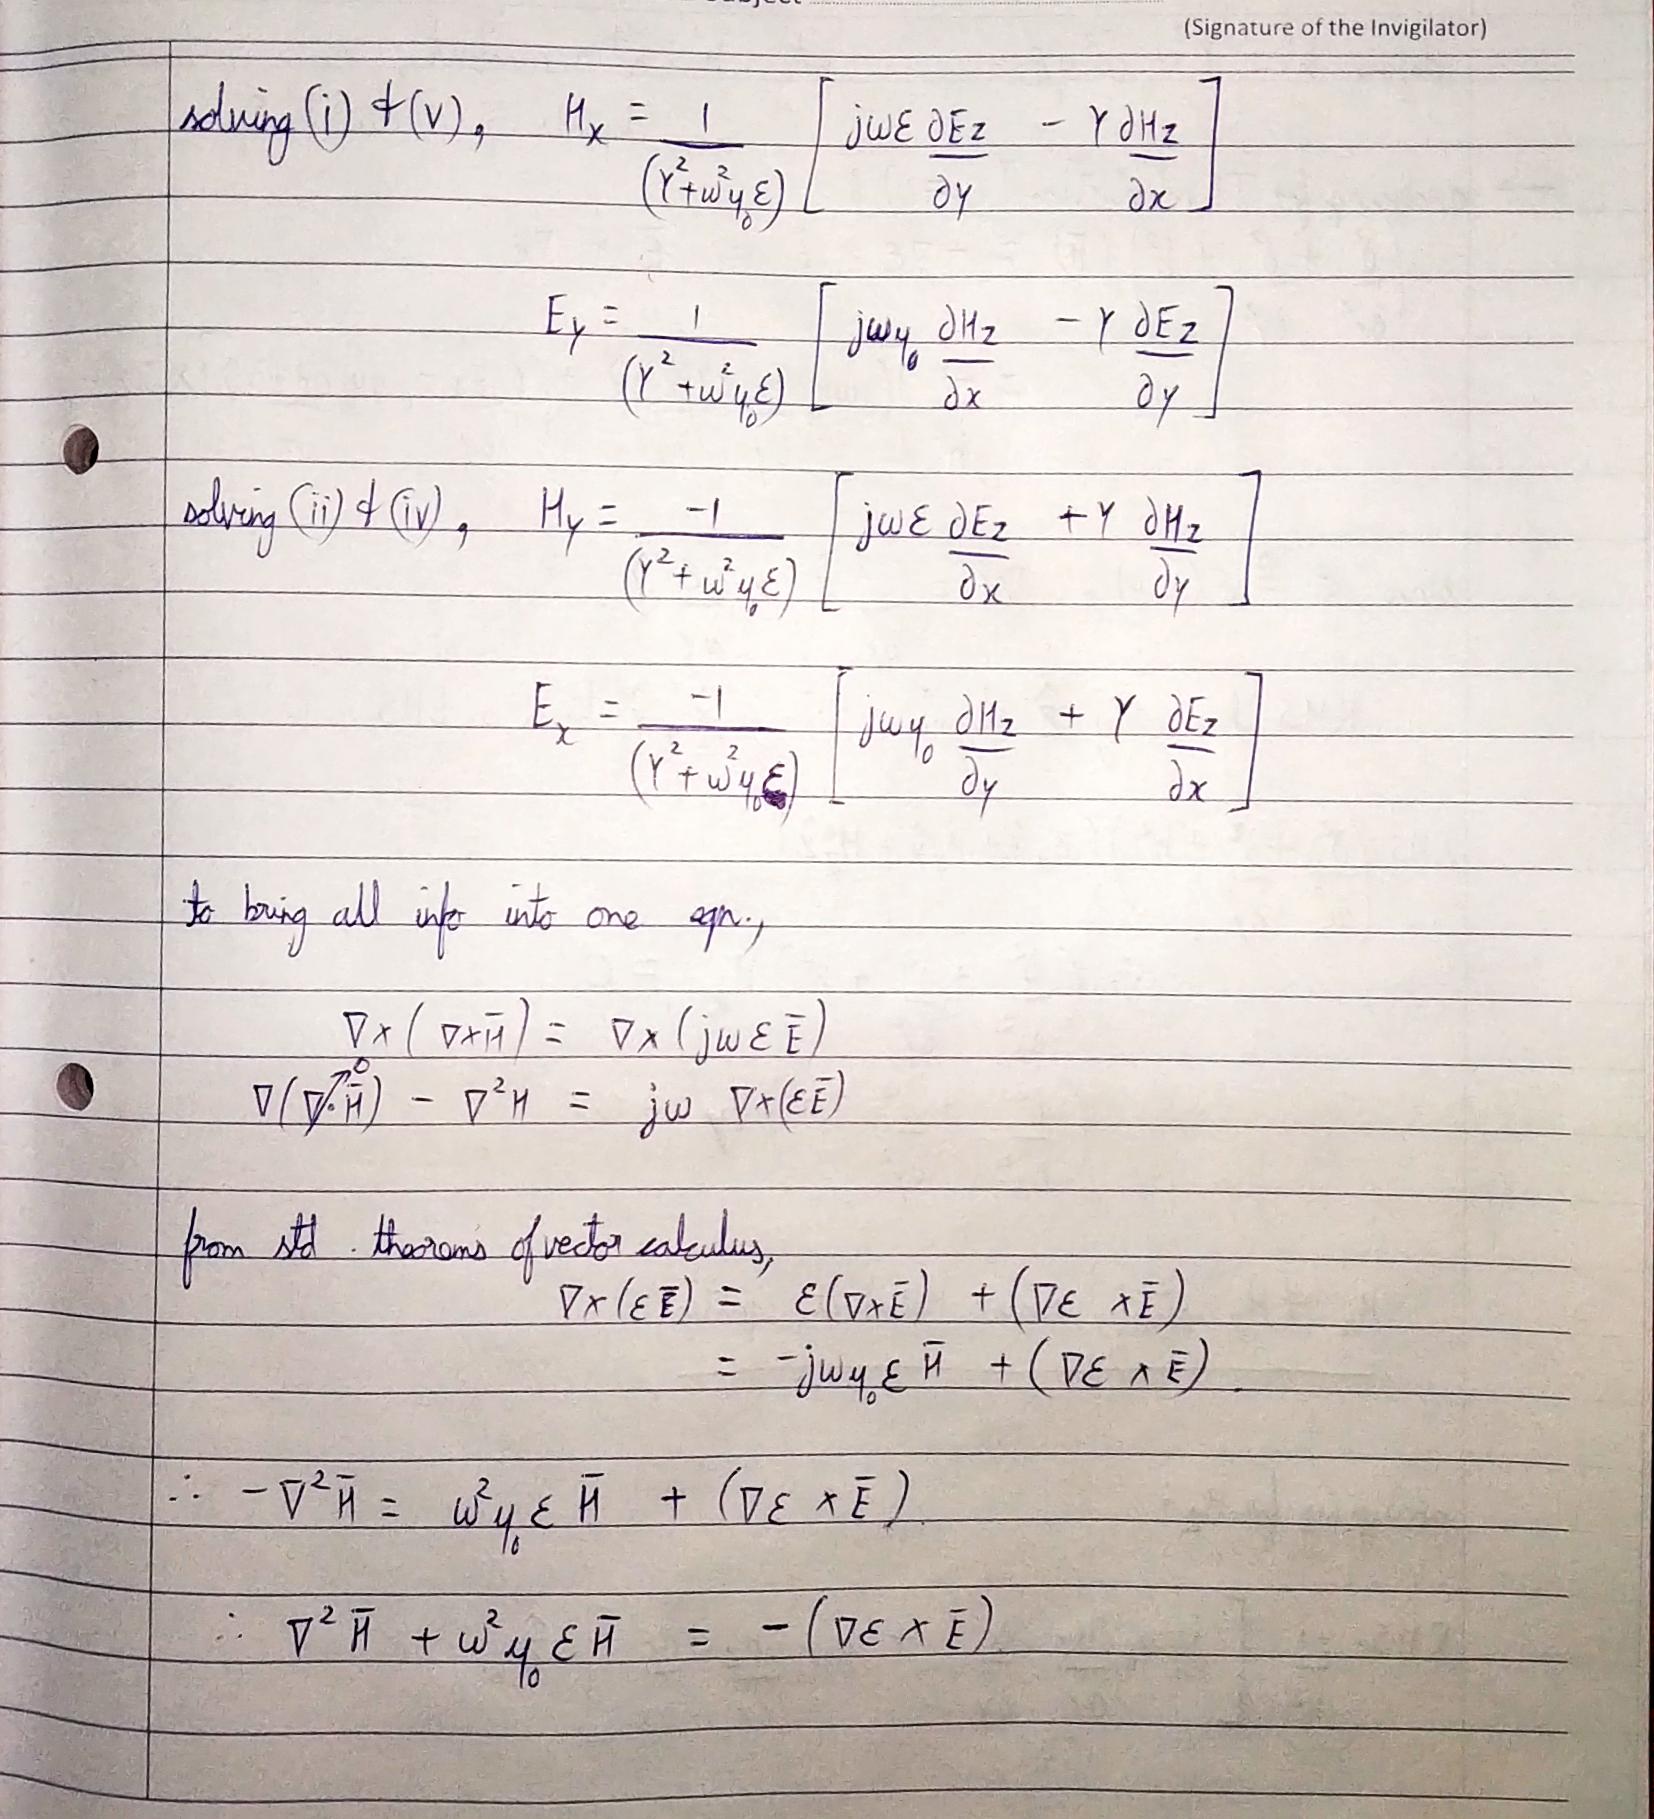 (Signature of the Invigilator)
solving (i) & (v), Hx = 1/(γ²+ω²μ₀ε) [jωε ∂Ez/∂y - γ ∂Hz/∂x]
Ey = 1/(γ²+ω²μ₀ε) [jωμ₀ ∂Hz/∂x - γ ∂Ez/∂y]
solving (ii) & (iv), Hy = -1/(γ²+ω²μ₀ε) [jωε ∂Ez/∂x + γ ∂Hz/∂y]
Ex = -1/(γ²+ω²μ₀ε) [jωμ₀ ∂Hz/∂y + γ ∂Ez/∂x]
to bring all info into one eqn.,
∇×(∇×H̄) = ∇×(jωεĒ)
∇(∇·H̄)↗0 - ∇²H = jω ∇×(εĒ)
from std. theorems of vector calculus,
∇×(εĒ) = ε(∇×Ē) + (∇ε×Ē)
= -jωμ₀εH̄ + (∇ε×Ē)
∴ -∇²H̄ = ω²μ₀εH̄ + (∇ε×Ē)
∴ ∇²H̄ + ω²μ₀εH̄ = -(∇ε×Ē)